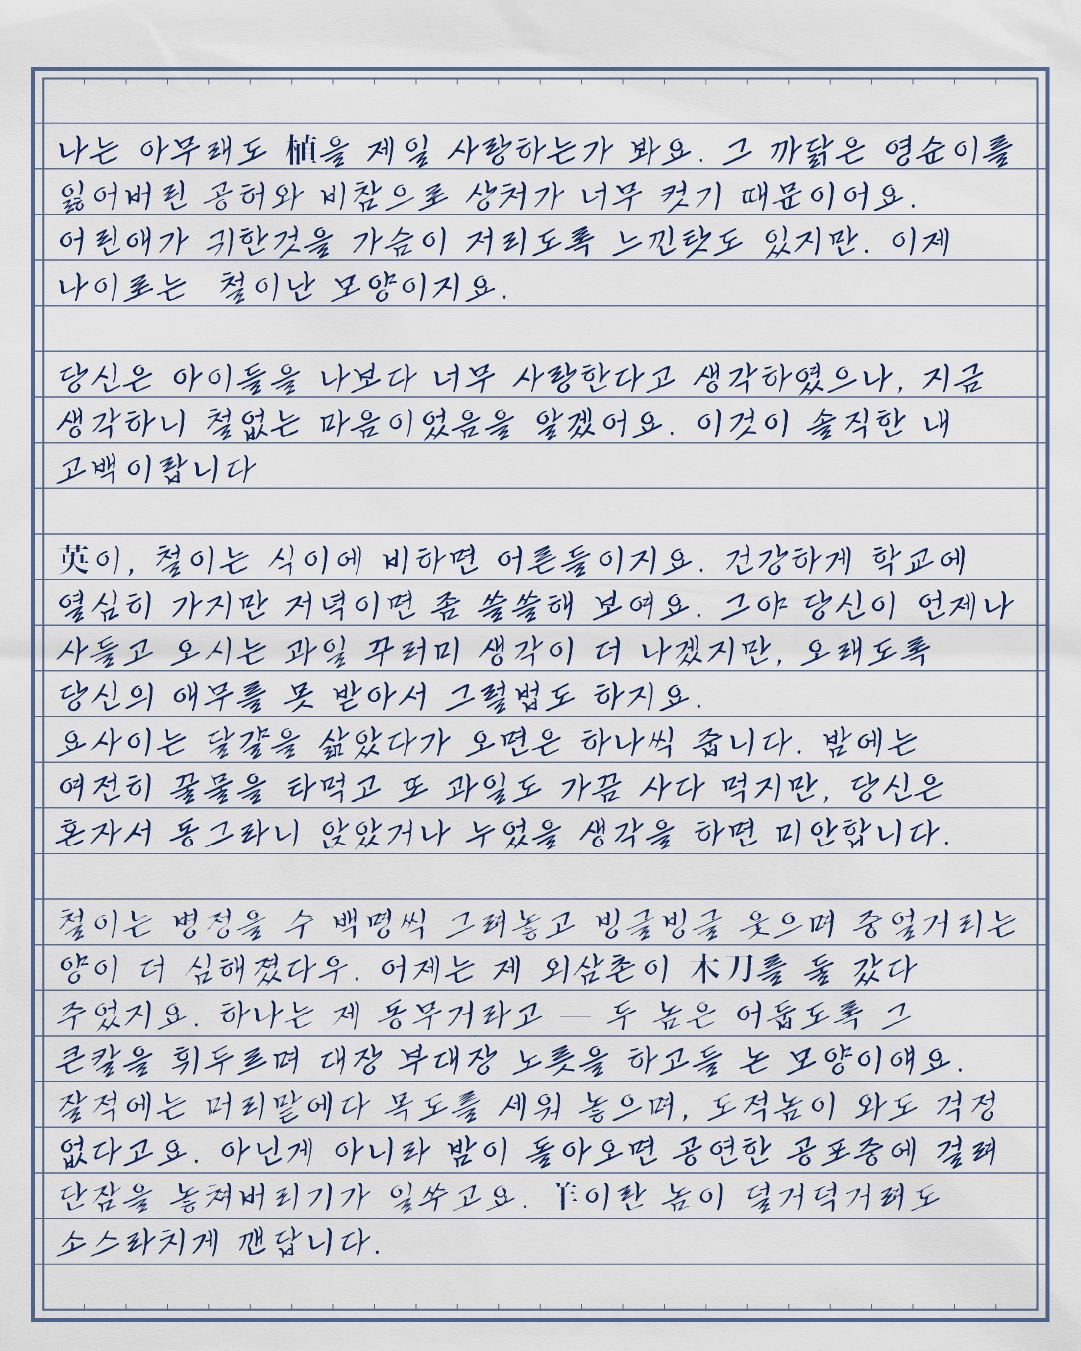 나는 아무래도 植을 제일 사랑하는가 봐요. 그 까닭은 영순이를
잃어버린 공허와 비참으로 상처가 너무 컷기 때문이어요.
어린애가 귀한것을 가슴이 저리도록 느낀탓도 있지만. 이제
나이로는 철이난 모양이지요.
당신은 아이들을 나보다 너무 사랑한다고 생각하였으나, 지금
생각하니 철없는 마음이었음을 알겠어요. 이것이 솔직한 내
고백이랍니다
英이, 철이는 식이에 비하면 어른들이지요. 건강하게 학교에
열심히 가지만 저녁이면 좀 쓸쓸해 보여요. 그야 당신이 언제나
사들고 오시는 과일 꾸러미 생각이 더 나겠지만, 오래도록
당신의 애무를 못 받아서 그럴법도 하지요.
요사이는 달걀을 삶았다가 오면은 하나씩 줍니다. 밤에는
여전히 꿀물을 타먹고 또 과일도 가끔 사다 먹지만, 당신은
혼자서 동그라니 앉았거나 누었을 생각을 하면 미안합니다.
철이는 병정을 수 백명씩 그려놓고 빙글빙글 웃으며 중얼거리는
양이 더 심해졌다우. 어제는 제 외삼촌이 木刀를 둘 갔다
주었지요. 하나는 제 동무거라고 — 두 놈은 어둡도록 그
큰칼을 휘두르며 대장 부대장 노릇을 하고들 논 모양이얘요.
잘적에는 머리맡에다 목도를 세워 놓으며, 도적놈이 와도 걱정
없다고요. 아닌게 아니라 밤이 돌아오면 공연한 공포중에 걸려
단잠을 놓쳐버리기가 일쑤고요. 羊이란 놈이 덜거덕거려도
소스라치게 깬답니다.